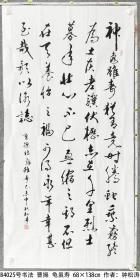 神龜雖壽猶有竟時騰蛇乘霧終
為土灰老驥伏櫪志在千里烈士
暮年壯心不已盈縮之期不但
在天養怡之福可得永年幸甚
至哉歌以詠志
84025号书法 曹操 龟虽寿 68×138cm 作者：钟松